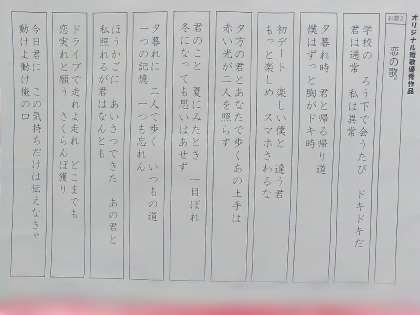 オリジナル短歌優秀作品
お題2
恋の歌。
学校の　ろう下で会うたび　ドキドキだ
君は通常　私は異常
夕暮れ時　君と帰る帰り道
僕はずっと胸がドキ時
初デート　楽しい僕と　違う君
もっと楽しめ　スマホさわるな
夕方の君とあなたで歩くあの土手は
赤い光が二人を照らす
君のこと　夏にみたとき　一目ぼれ
冬になっても思いはあせず
夕暮れに　二人で歩く　いつもの道
一つの記憶　一つも忘れん
ほうかごに　あいさつできた　あの君と
私照れるが君はなんとも
ドライブで走れよ走れ　どこまでも
恋実れと願う　さくらんぼ獲り
今日君に　この気持ちだけは伝えなきゃ
動けよ動け俺の口